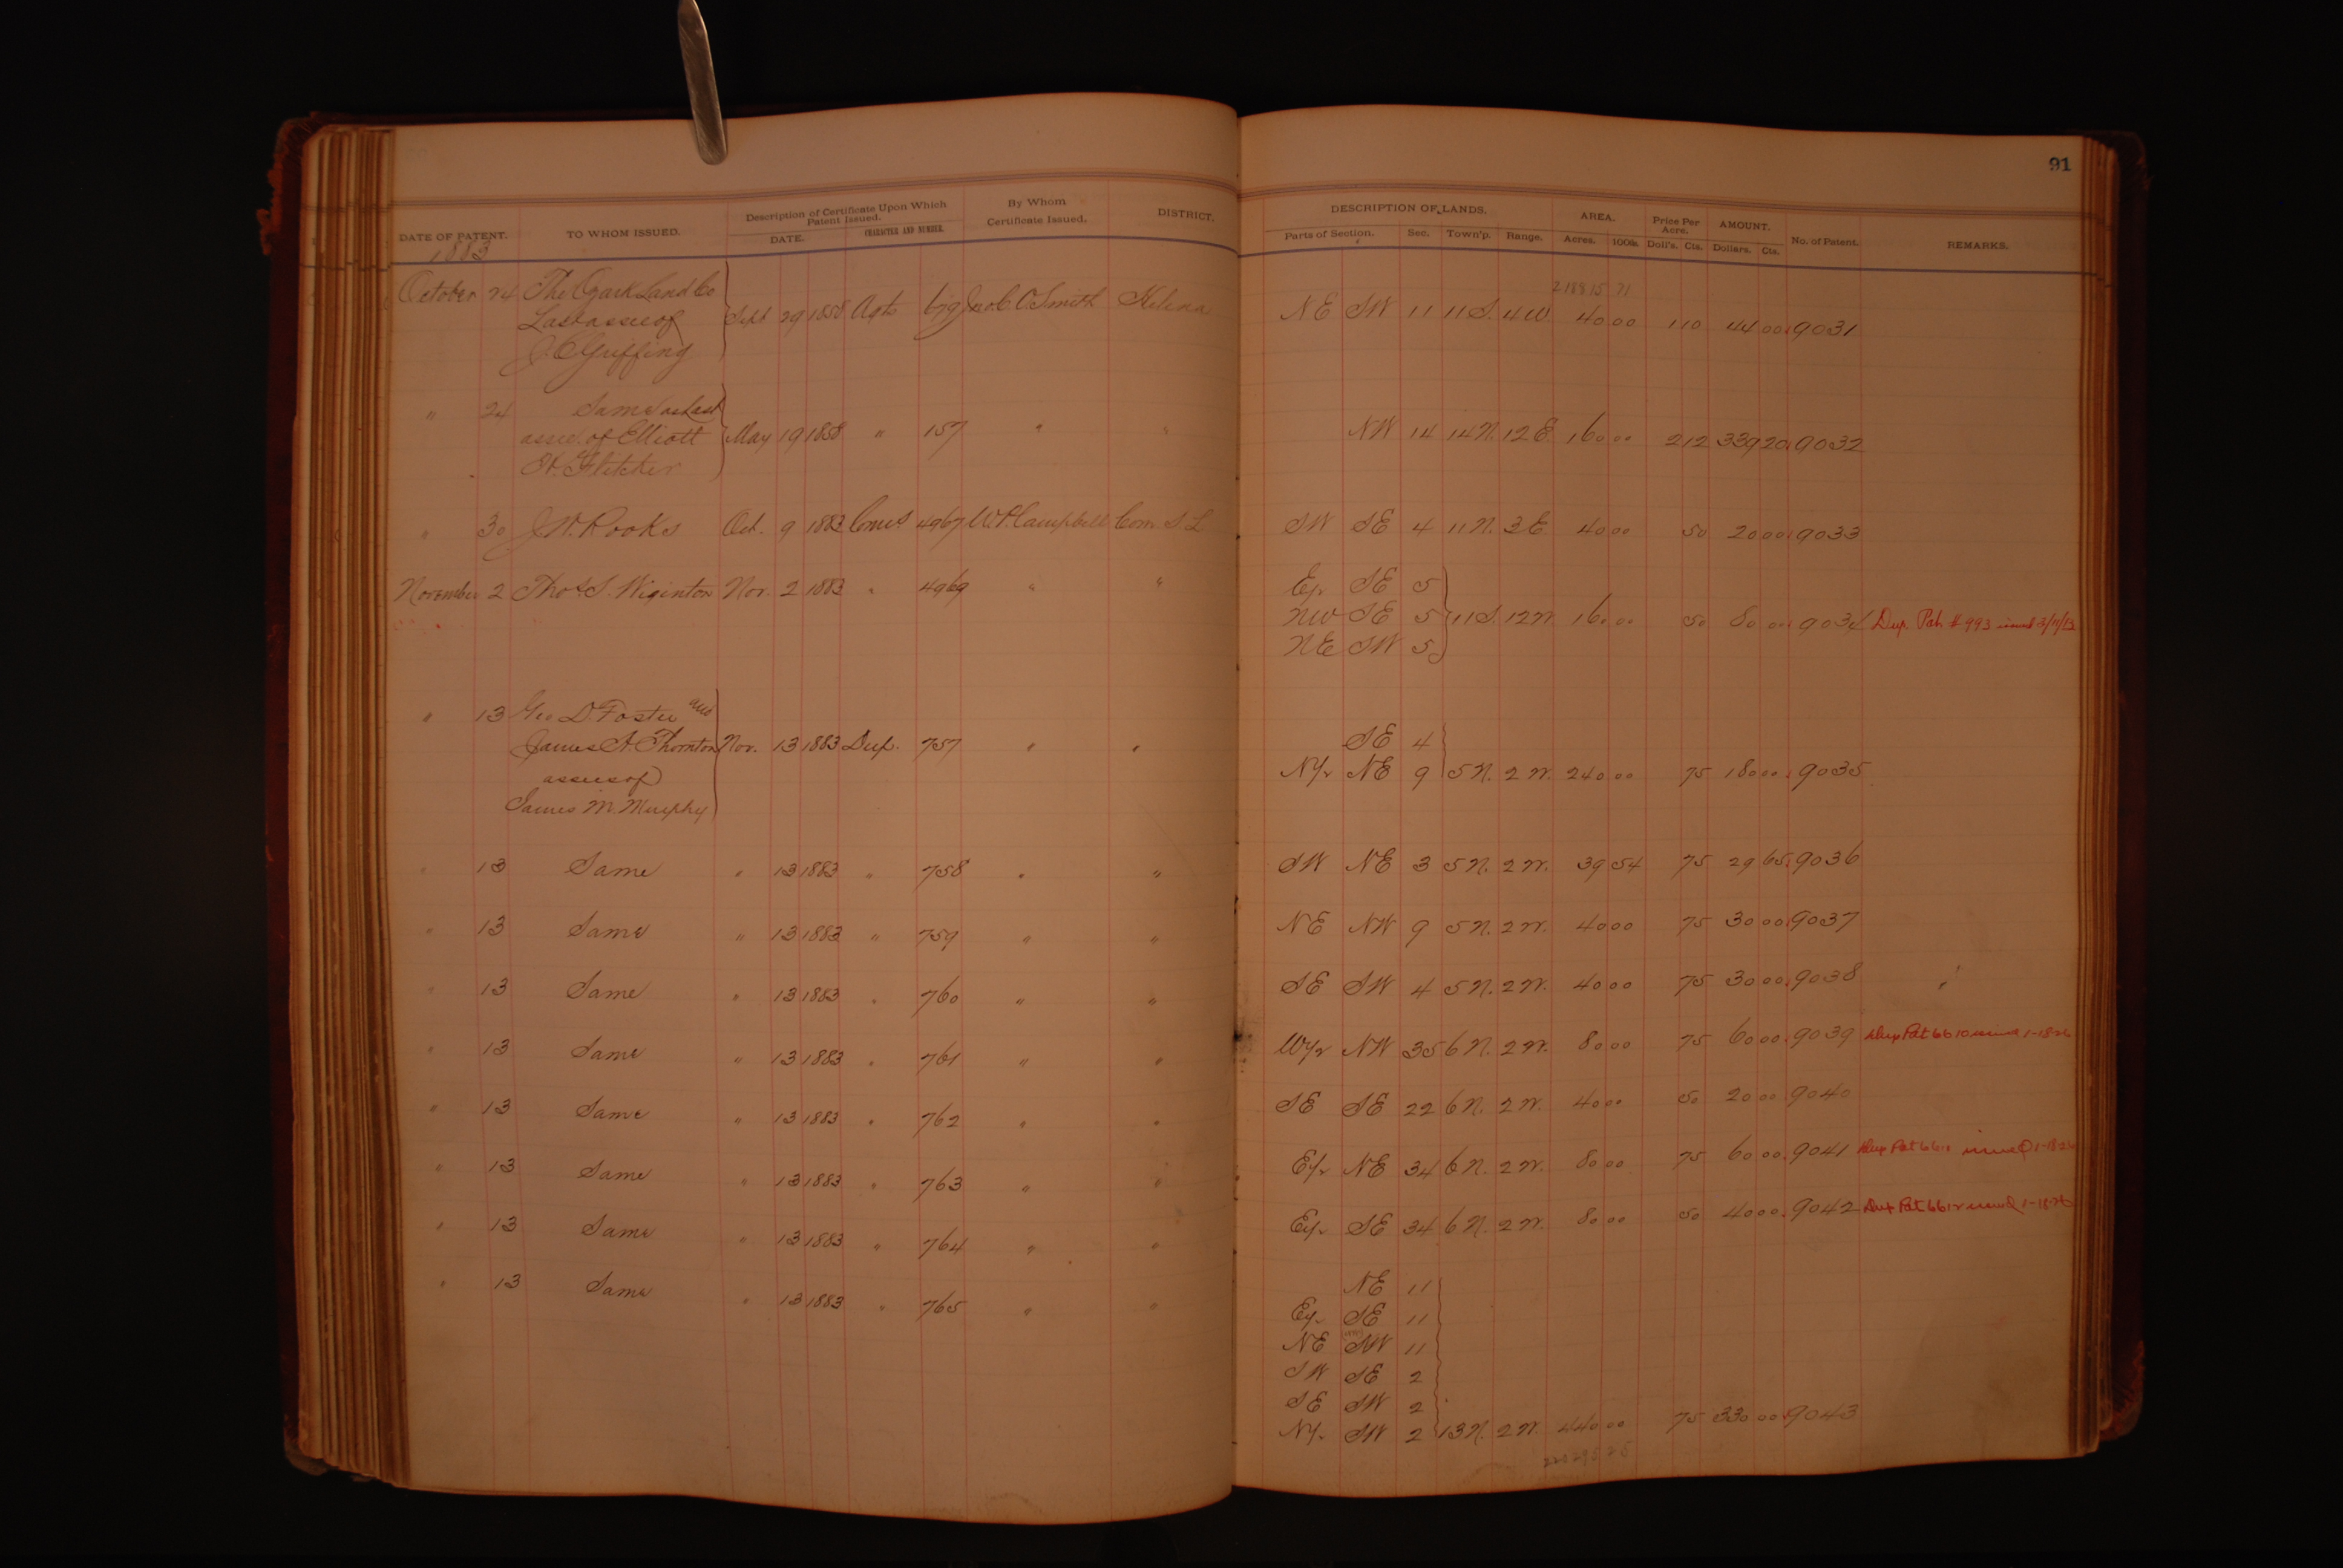 91
DATE OF PATENT. TO WHOM ISSUED. Description of Certificate Upon Which Patent Issued. DATE. CHARACTER AND NUMBER. By Whom Certificate Issued. DISTRICT.
DESCRIPTION OF LANDS. Parts of Section. Sec. Town'p. Range. AREA. Acres. 100ths. Price Per Acre. Doll's. Cts. AMOUNT. Dollars. Cts. No. of Patent. REMARKS.
1883
218815 71
October 24 The Ozark Land Co
Last assee of Sept 29 1858 Agts 619 Jno. C. Smith Helena NE SW 11 11 S. 4 W. 40 00 1 10 44 00 9031
J. C. Griffing
" 24 Same as Last
assee. of Elliott May 19 1858 " 157 " " NW 14 14 N. 12 E 160 00 2 12 339 20 9032
H. Fletcher
" 30 J. W. Rooks Oct. 9 1883 4967 W. P. Campbell Com. S L SW SE 4 11 N. 3 E 40 00 50 20 00 9033
November 2 Thos. S. Wiginton Nov. 2 1883 " 4969 " " E½ SE 5
NW SE 5 11 S. 12 W 160 00 50 80 00 9034 Dup. Pat. # 993 issued 3/11/13
NE SW 5
" 13 Geo D. Foster and
James A. Thornton Nov. 13 1883 Dup. 757 " " SE 4
assees of N½ NE 9 5 N. 2 W. 240 00 75 180 00 9035
James M. Murphy
" 13 Same " 13 1883 " 758 " " SW NE 3 5 N. 2 W. 39 54 75 29 65 9036
" 13 Same " 13 1883 " 759 " " NE NW 9 5 N. 2 W. 40 00 75 30 00 9037
" 13 Same " 13 1883 " 760 " " SE SW 4 5 N. 2 W. 40 00 75 30 00 9038
" 13 Same " 13 1883 " 761 " " W½ NW 35 6 N. 2 W. 80 00 75 60 00 9039 Dup Pat 6610 issued 1-18-26
" 13 Same " 13 1883 " 762 " " SE SE 22 6 N. 2 W. 40 00 50 20 00 9040
" 13 Same " 13 1883 " 763 " " E½ NE 34 6 N. 2 W. 80 00 75 60 00 9041 Dup Pat 6611 issued 1-18-26
" 13 Same " 13 1883 " 764 " " E½ SE 34 6 N. 2 W. 80 00 50 40 00 9042 Dup Pat 6612 issued 1-18-26
" 13 Same " 13 1883 " 765 " " NE 11
E½ SE 11
NE SW 11
SW SE 2
SE SW 2
N½ SW 2 13 N. 2 W. 440 00 75 330 00 9043